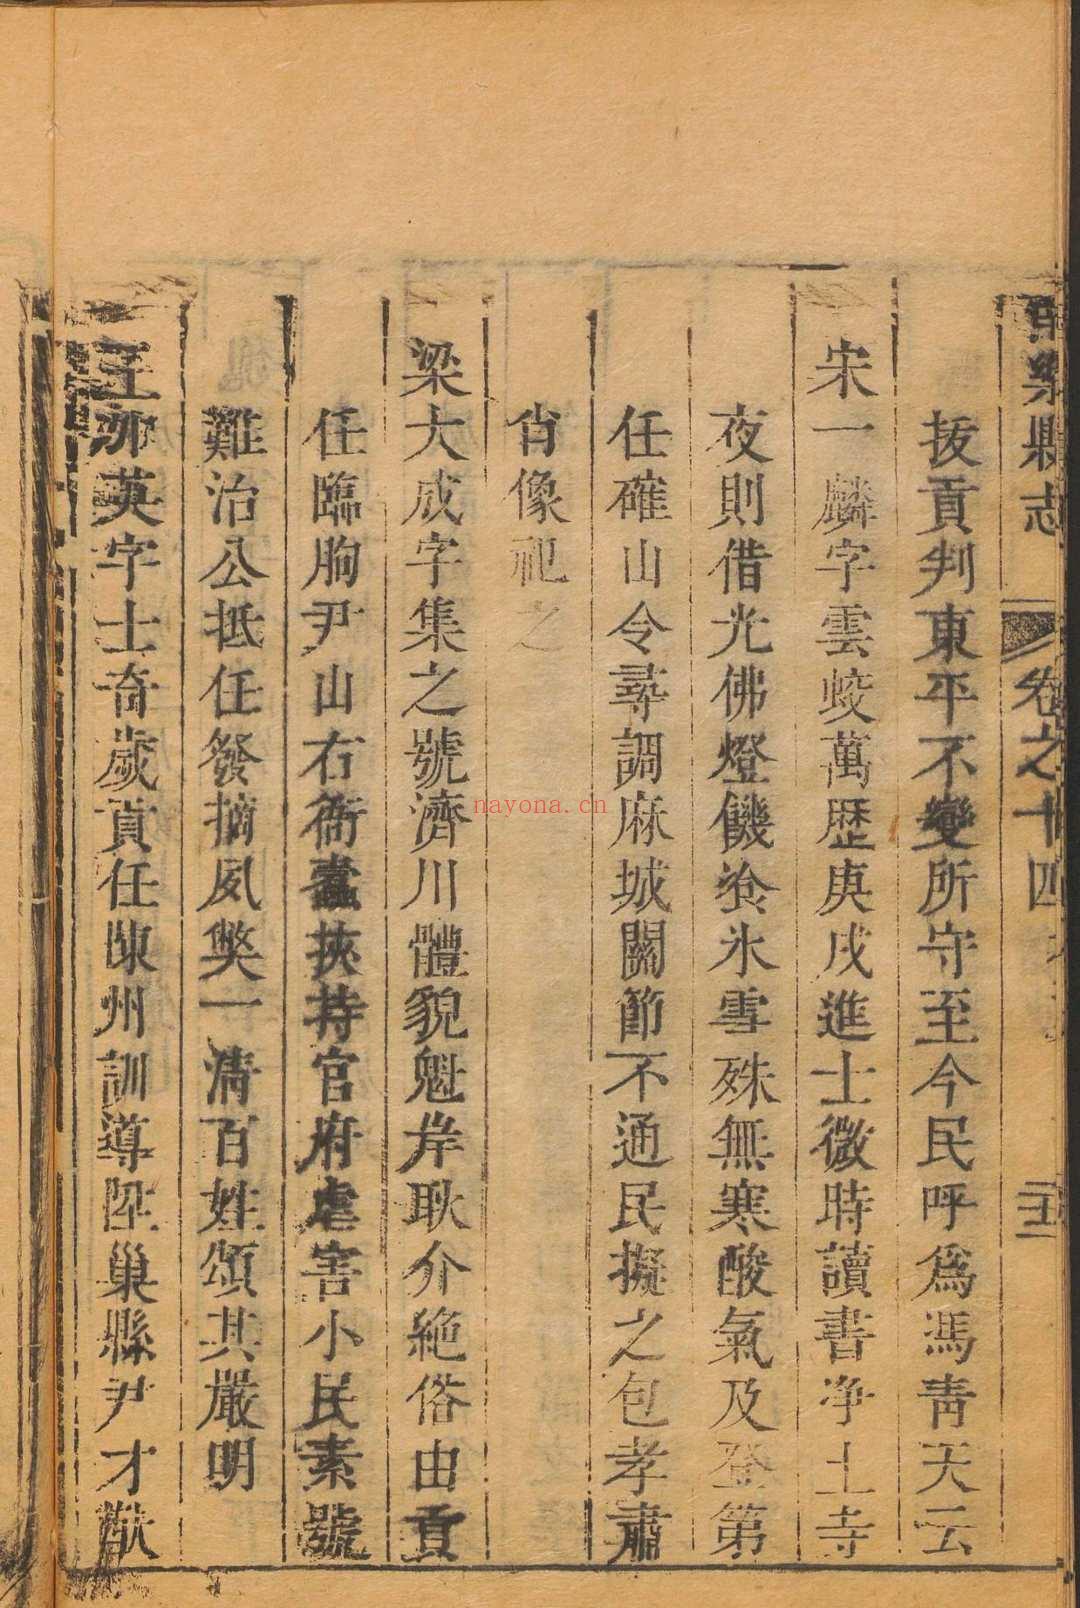 樂縣志
卷之十四
拔貢判東平不變所守至今民呼為馮青天云
宋一麟字雲蛟萬歷庚戌進士微時讀書淨土寺
夜則借光佛燈饑飡氷雪殊無寒酸氣及登第
任確山令尋調麻城關節不通民擬之包孝肅
肖像祀之
梁大成字集之號濟川體貌魁岸耿介絶俗由貢
任臨朐尹山右衙蠹挾持官府虐害小民素號
難治公抵任發摘夙獘一清百姓頌其嚴明
王 英字士奇歲貢任陳州訓導陞巢縣尹才猷
nayona.cn